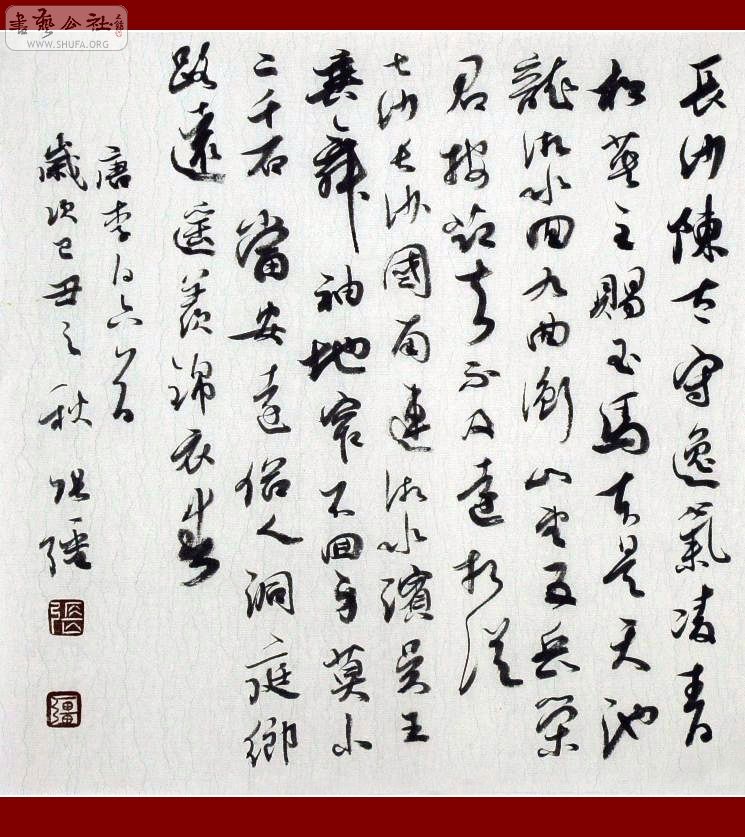 書藝公社
WWW.SHUFA.ORG
長沙陳太守逸氣凌青
松英主賜玉馬本是天池
龍湘水回九曲衡山望五峯榮
君按節去不及遠相從
七郡長沙國南連湘水濱定王
垂舞袖地窄不回身莫小
二千石當安遠俗人洞庭鄉
路遠遙羨錦衣春
唐李白六首
歲次己丑之秋 張疆
張
疆